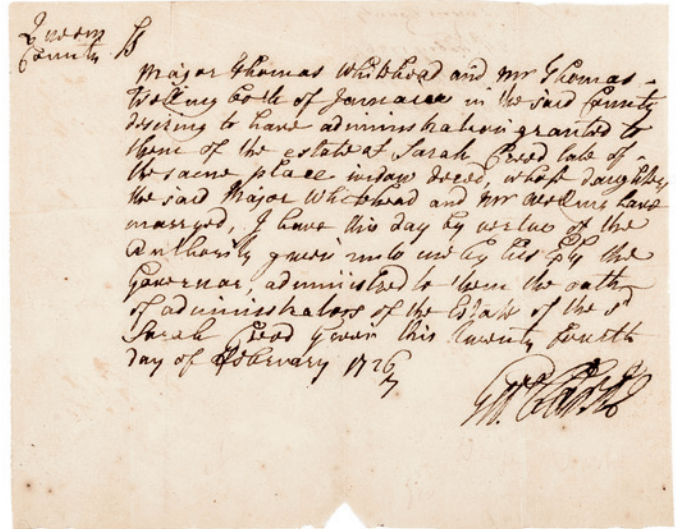 Queens
County ss
Major Thomas Whitehead and Mr Thomas
Welling both of Jamaica in the said County
desiring to have administration granted to
them of the estate of Sarah Creed late of
the same place widow deced, whose daughters
the said Major Whitehead and Mr Welling have
marryed, I have this day by vertue of the
Authority given unto me by his Exly the
Governor, administred to them the oath
of administrators of the Estate of the sd
Sarah Creed Given this Twenty fourth
day of February 1726
7
Clarke